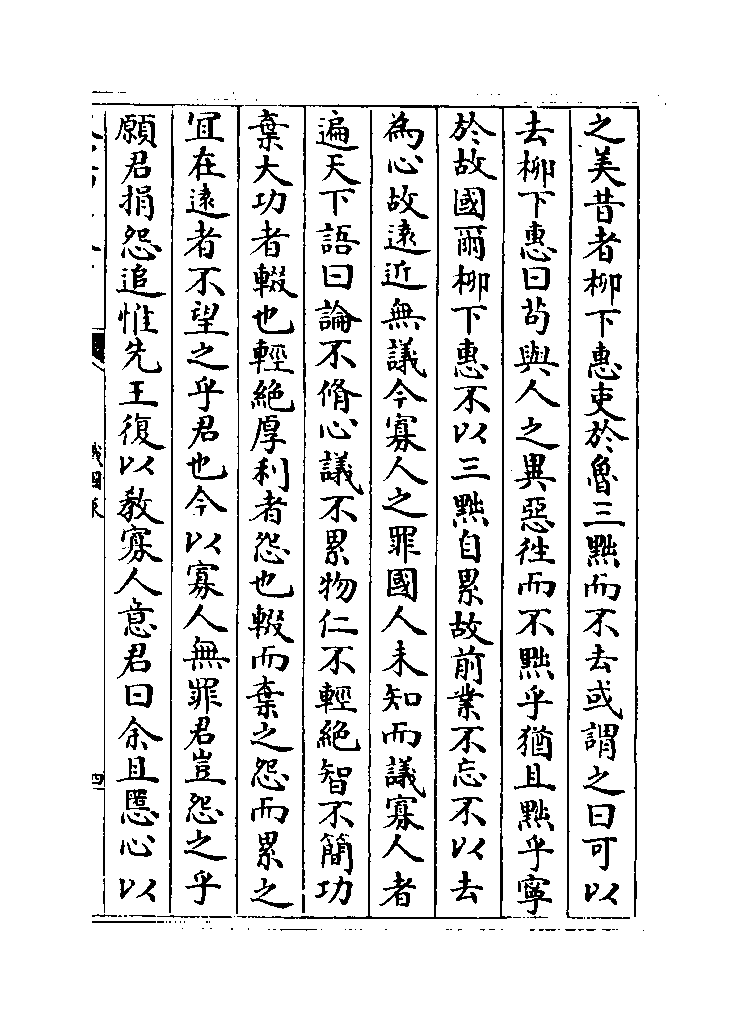 之美昔者柳下惠吏於魯三黜而不去或謂之曰可以
去柳下惠曰茍與人之異惡徃而不黜乎猶且黜乎寧
於故國爾柳下惠不以三黜自累故前業不忘不以去
為心故遠近無議今寡人之罪國人未知而議寡人者
遍天下語曰論不脩心議不累物仁不輕絶智不簡功
棄大功者輟也輕絶厚利者怨也輟而棄之怨而累之
宜在遠者不望之乎君也今以寡人無罪君豈怨之乎
願君捐怨追惟先王復以敎寡人意君曰余且慝心以
四